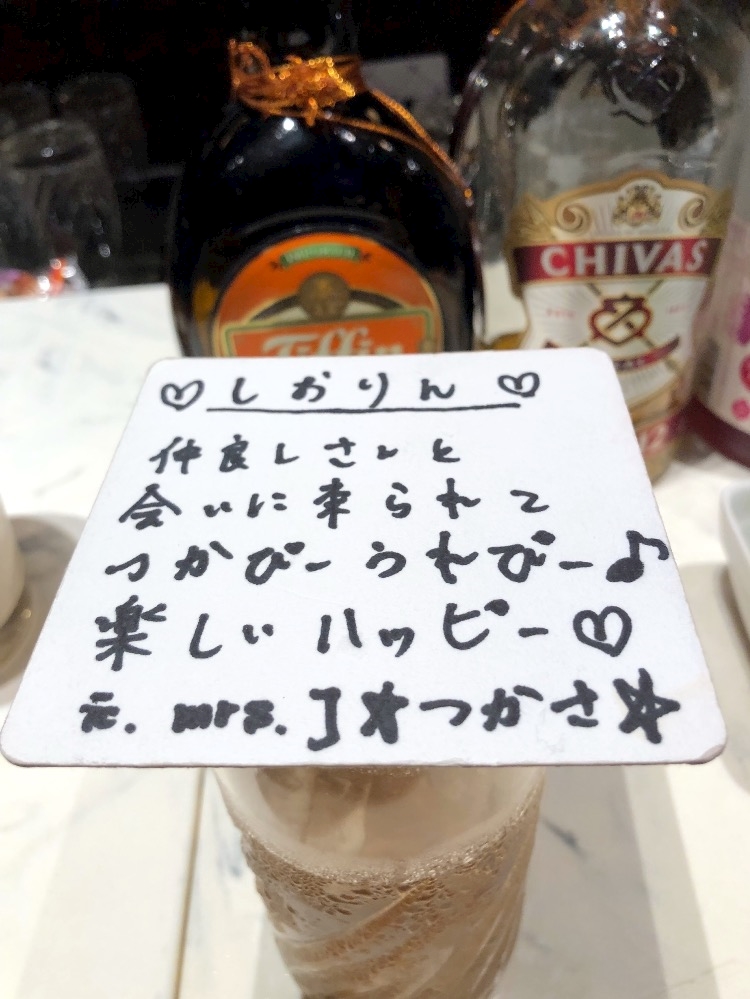 CHIVAS
Tiffin
♡しおりん♡
仲良しさんと
会いに来られて
つかぴーうれぴー♪
楽しいハッピー♡
元.mrs.J☆つかさ☆